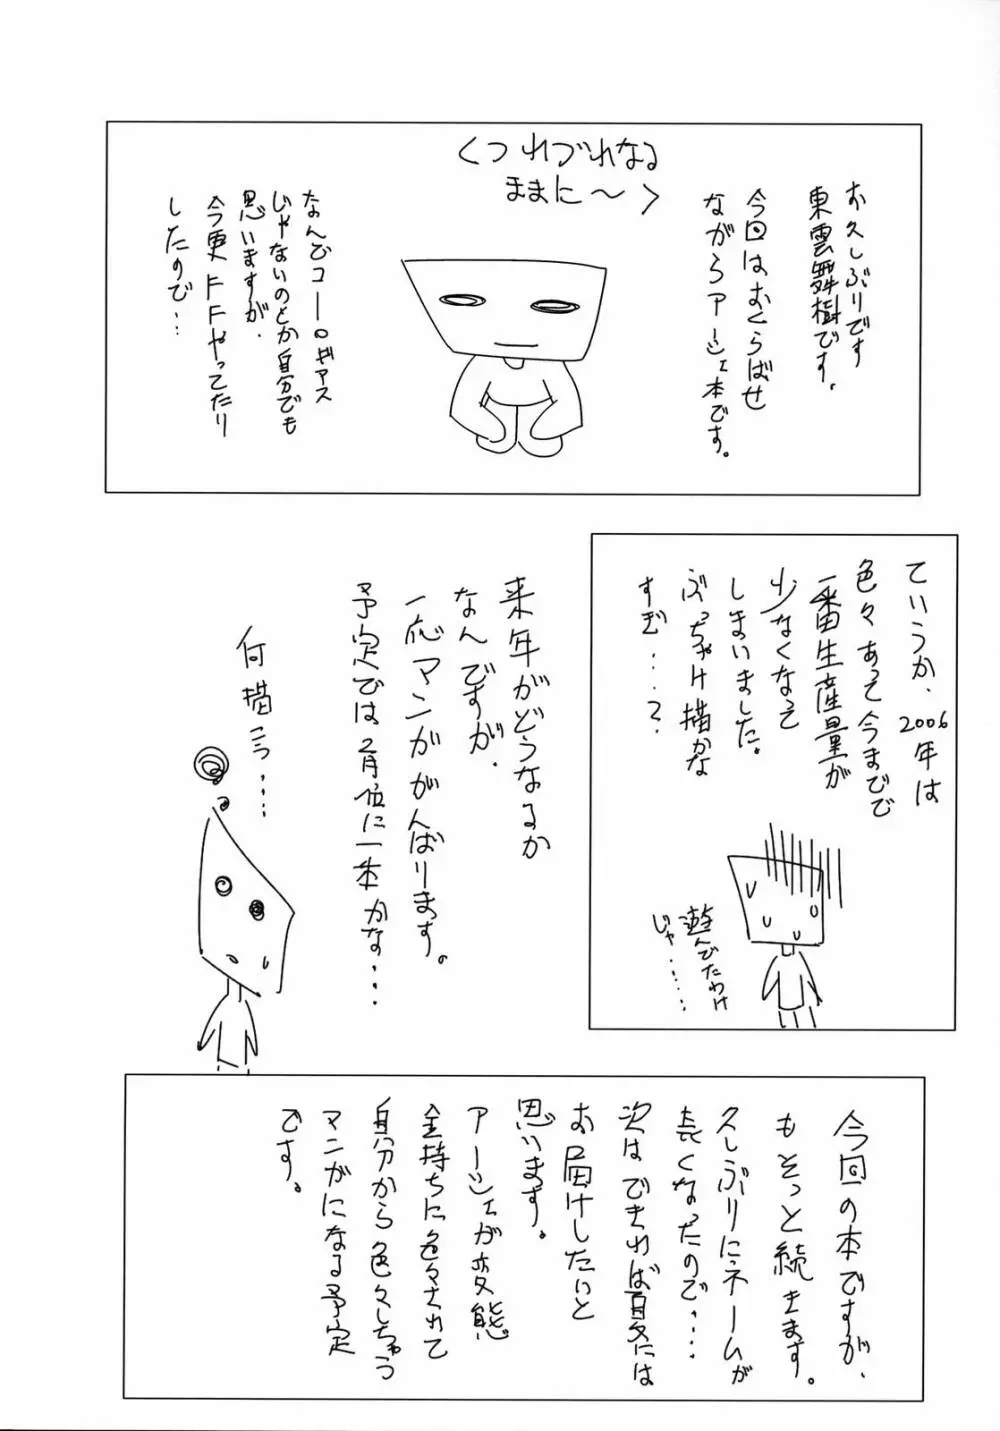 くつれづれなる
ままに～＞
お久しぶりです
東雲舞樹です。
今回はおくらばせ
ながらアーシェ本です。
なんでコードギアス
じゃないのとか自分でも
思いますが、
今更FFやってたり
したので…
ていうか、2006年は
色々あって今までで
一番生産量が
少なくなって
しまいました。
ぶっちゃけ描かな
すぎ…？
遊んでたわけ
じゃ……
来年がどうなるか
なんですが、
一応マンガがんばります。
予定では2月位に一本かな…
何描こう…
今回の本ですが、
もそっと続きます。
久しぶりにネームが
長くなったので…
次はできれば夏には
お届けしたいと
思います。
アーシェが変態
金持ちに色々されて
自分から色々しちゃう
マンガになる予定
です。